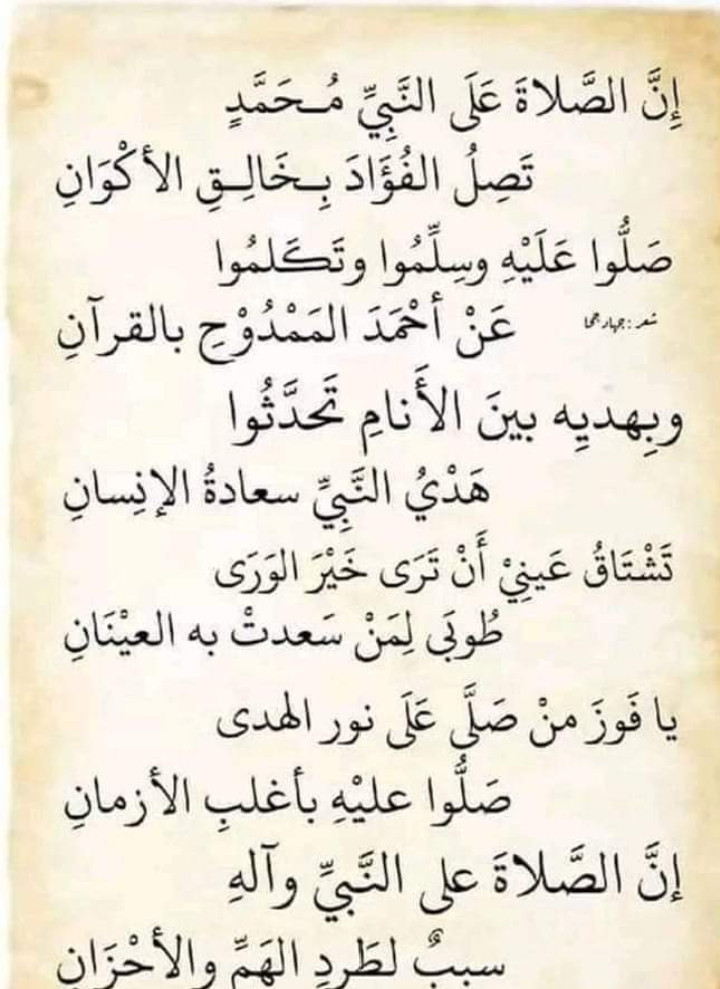 إِنَّ الصَّلاةَ عَلَى النَّبِيِّ مُـحَمَّدٍ
تَصِلُ الفُؤَادَ بِـخَالِـقِ الأكْوَانِ
صَلُّوا عَلَيْهِ وسِلِّمُوا وتَكَلمُوا
شعر : جهاد جحا
عَنْ أحْمَدَ المَمْدُوْحِ بالقرآنِ
وبِهديِه بينَ الأَنامِ تَحدَّثُوا
هَدْيُ النَّبِيِّ سعادةُ الإنِسانِ
تَشْتَاقُ عَينِيْ أَنْ تَرَى خَيْرَ الوَرَى
طُوبَى لِمَنْ سَعدتْ به العيْنَانِ
يا فَوزَ منْ صَلَّى عَلَى نور الهدى
صَلُّوا عليْهِ بأغلبِ الأزمانِ
إنَّ الصَّلاةَ على النَّبيِّ وآلهِ
سببٌ لطَردِ الهَمِّ والأحْزَانِ